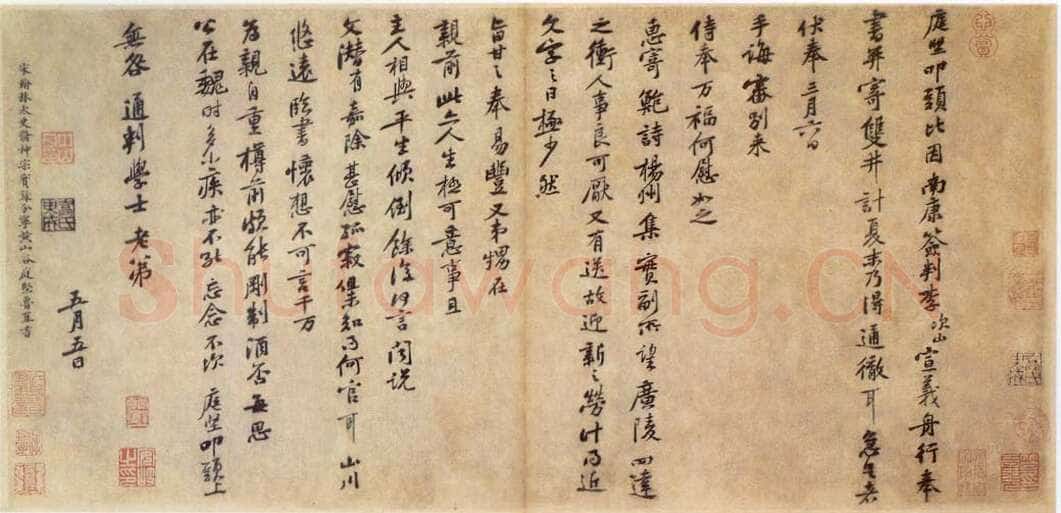 庭堅叩頭比因南康簽判李次山宣義舟行奉
書并寄雙井計夏末乃得通徹耳急足者
伏奉三月六日
手誨審別來
侍奉万福何慰如之
惠寄鮑詩楊州集實副所望廣陵四達
之衝人事良可厭又有送故迎新之勞計乃近
文字之日極少然
旨甘之奉易豐又弟甥在
親前此亦人生極可意事且
主人相與平生傾倒餘復何言聞說
文潛有嘉除甚慰孤寂集知乃何官耳山川
悠遠臨書懷想不可言千万
為親自重樽前頗能剛制酒否每思
公在魏時多小疾亦不能忘念不次庭堅叩頭上
無咎通判學士老弟
五月五日
宋翰林太史
分寧黃山谷庭堅魯直書
Shufawang.CN